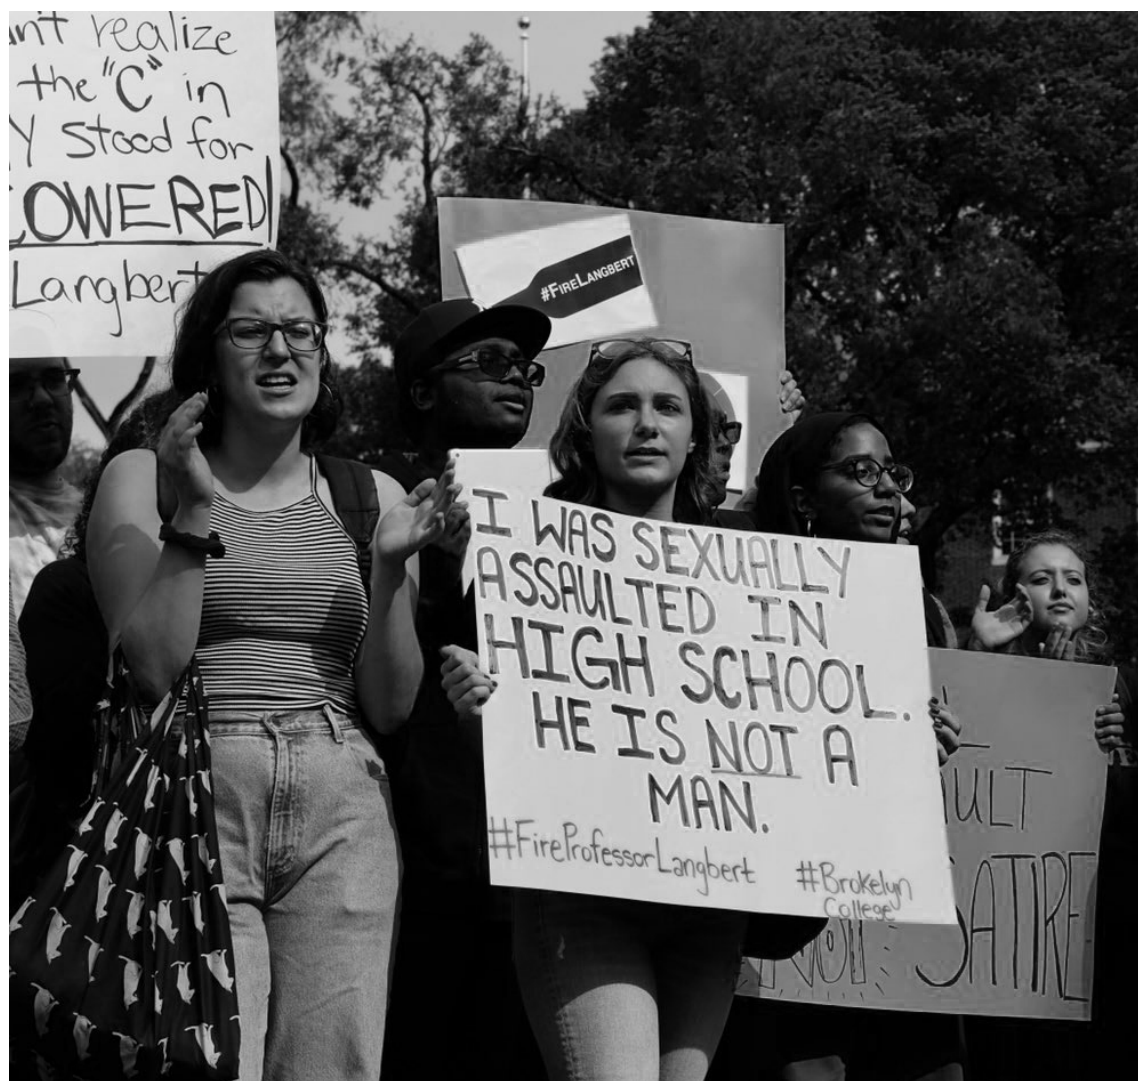 realize
the "C" in
Y stood for
COWERED!
Langbert
#FIRELANGBERT
I WAS SEXUALLY
ASSAULTED IN
HIGH SCHOOL.
HE IS NOT A
MAN.
#FireProfessorLangbert
#Brokelyn
College
ULT
NOT SATIRE